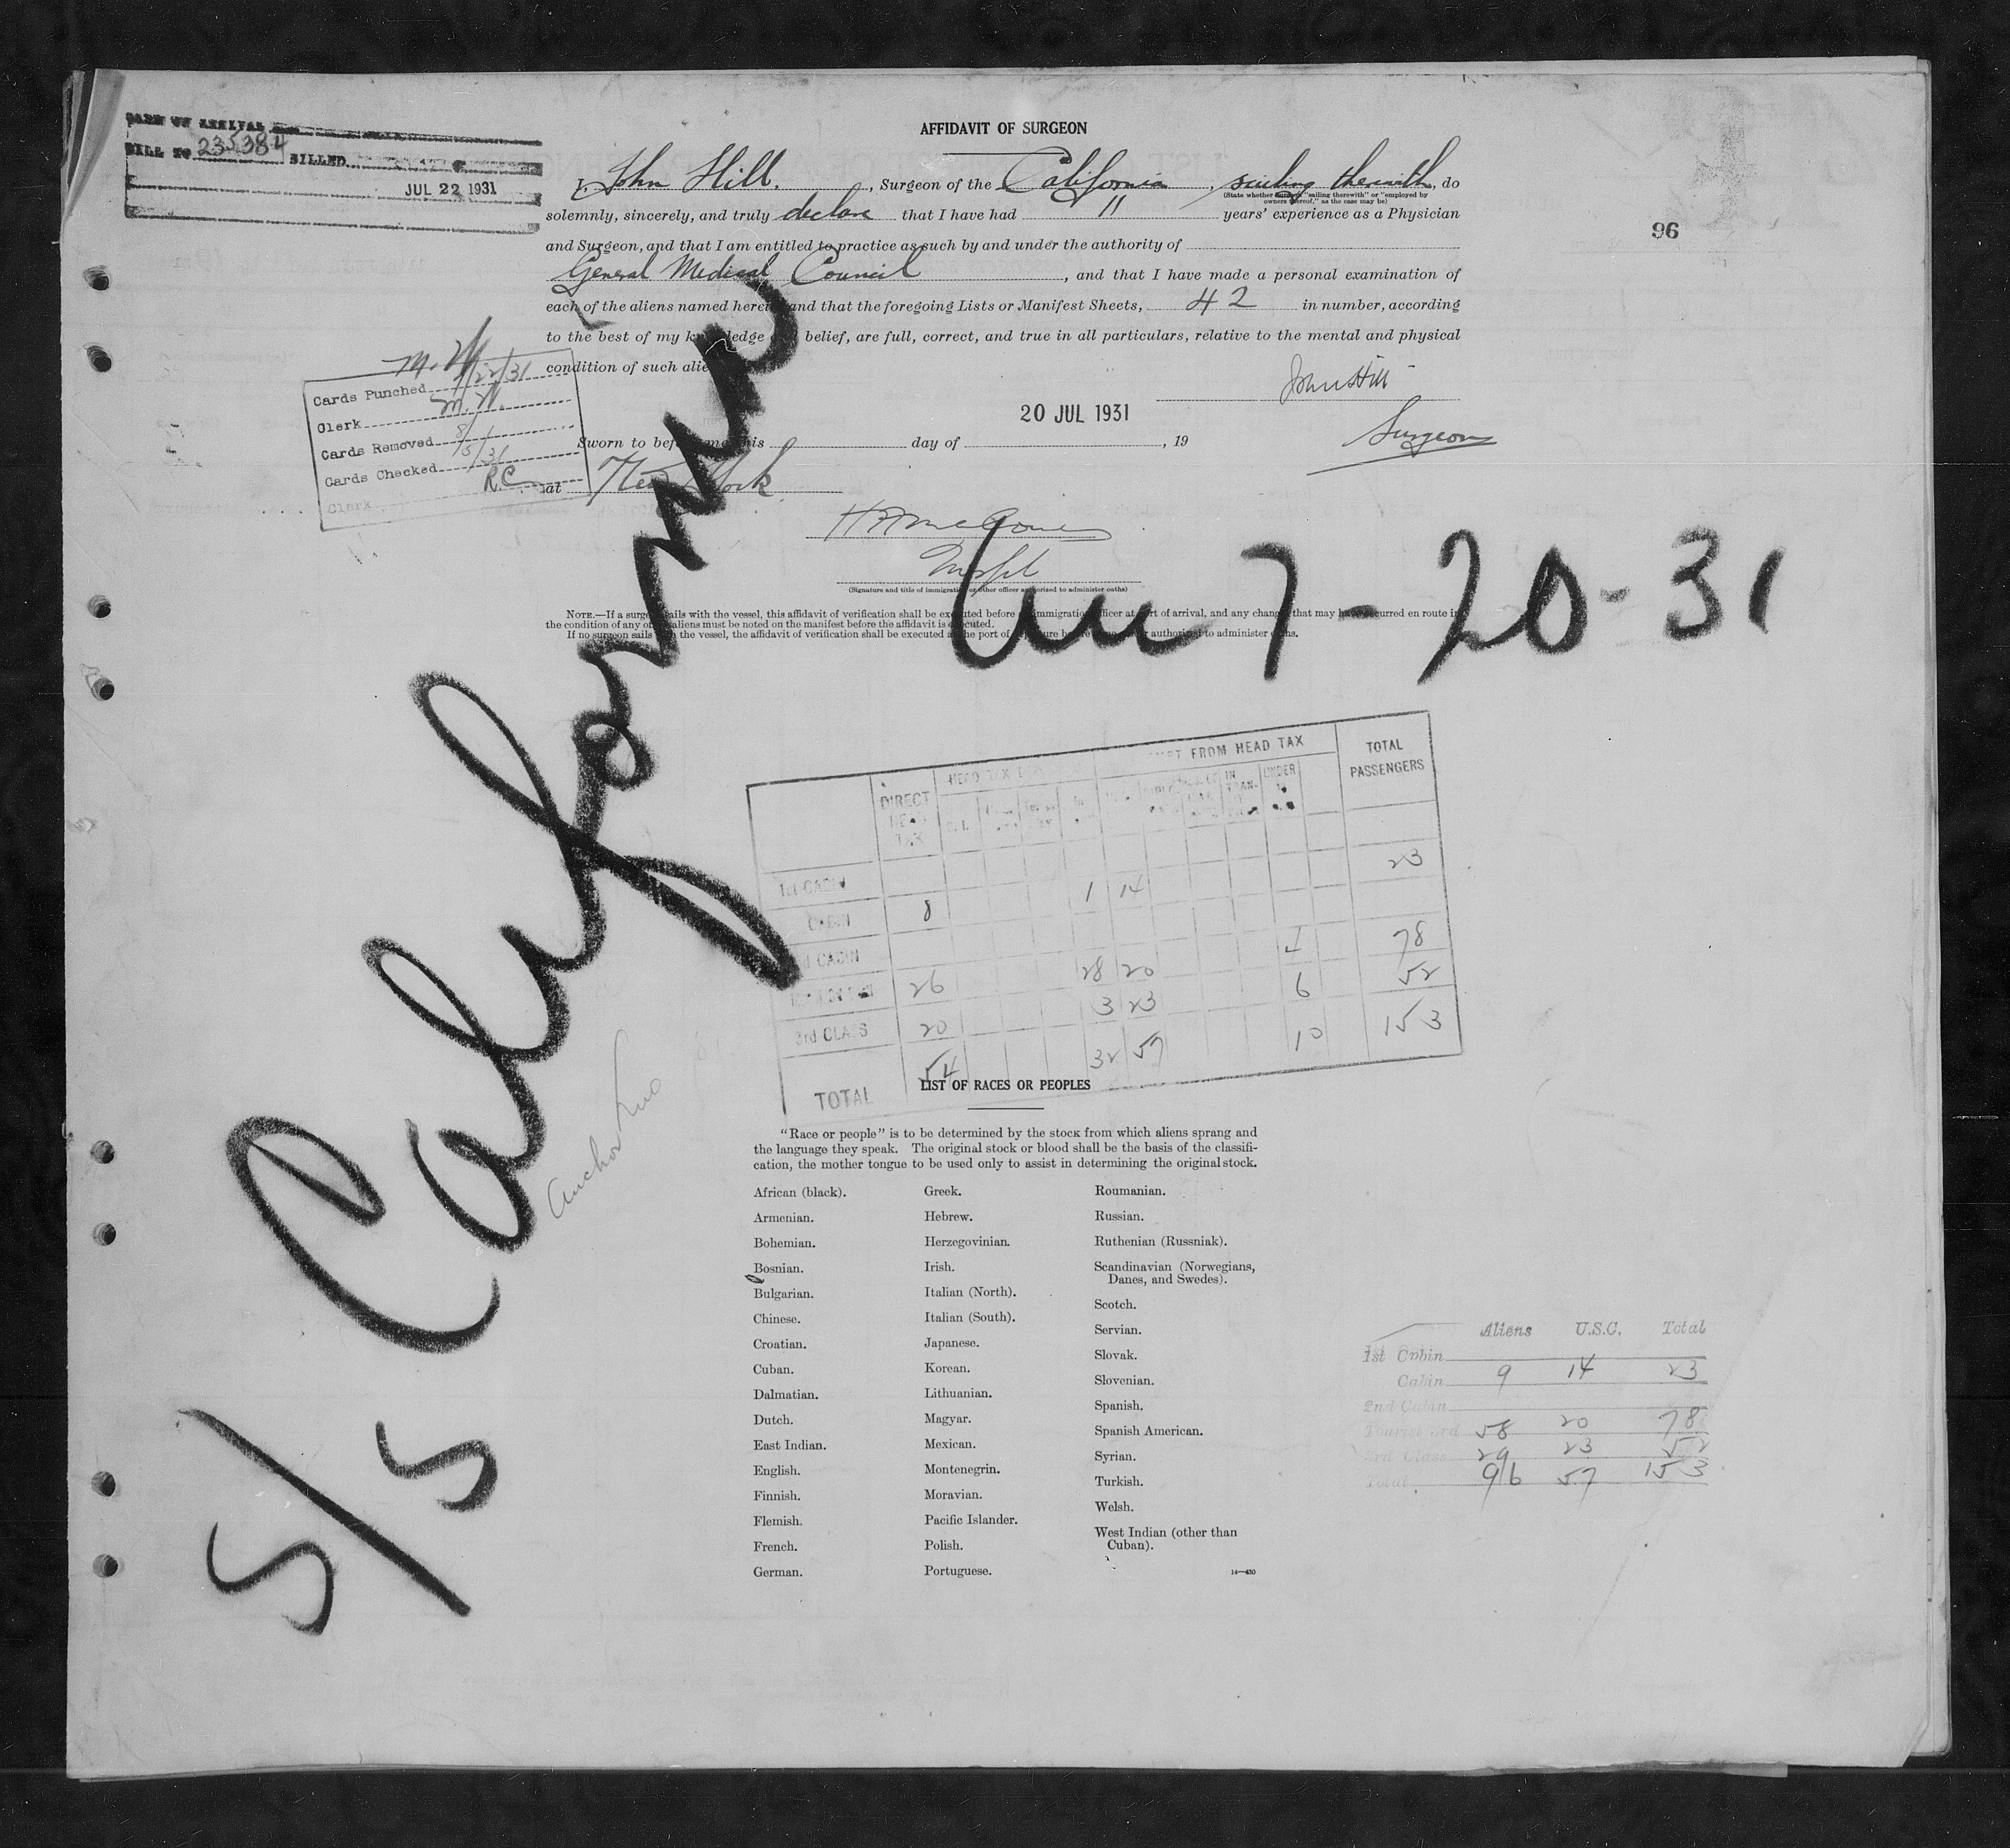 AFFIDAVIT OF SURGEON
BILL TO 235384 BILLED
JUL 22 1931
I, John Hill, Surgeon of the California, sailing therewith, do
(State whether surgeon "sailing therewith" or "employed by
owners thereof," as the case may be)
solemnly, sincerely, and truly declare that I have had 11 years' experience as a Physician
96
and Surgeon, and that I am entitled to practice as such by and under the authority of
General Medical Council, and that I have made a personal examination of
each of the aliens named herein and that the foregoing Lists or Manifest Sheets, 42 in number, according
to the best of my knowledge belief, are full, correct, and true in all particulars, relative to the mental and physical
condition of such alie
John Hill
Surgeon
20 JUL 1931
Sworn to before me this day of , 19
at New York
Cards Punched 7/22/31
Clerk M.W.
Cards Removed
Cards Checked 8/5/31
Clerk R.C.
(Signature and title of immigration or other officer authorized to administer oaths)
NOTE.—If a surgeon sails with the vessel, this affidavit of verification shall be executed before immigration officer at port of arrival, and any change that may have occurred en route in
the condition of any of aliens must be noted on the manifest before the affidavit is executed.
If no surgeon sails with the vessel, the affidavit of verification shall be executed at the port of departure before authorized to administer oaths.
S/S California
7-20-31
DIRECT HEAD TAX
HEAD TAX
FROM HEAD TAX
TOTAL PASSENGERS
IN TRAN-
UNDER 16
1st CABIN 23
CABIN 8 1 14
CABIN
26 28 20 78
3rd CLASS 20 3 23 6 52
TOTAL 54 32 57 10 153
Anchor Line
LIST OF RACES OR PEOPLES
"Race or people" is to be determined by the stock from which aliens sprang and
the language they speak. The original stock or blood shall be the basis of the classifi-
cation, the mother tongue to be used only to assist in determining the original stock.
African (black).
Armenian.
Bohemian.
Bosnian.
Bulgarian.
Chinese.
Croatian.
Cuban.
Dalmatian.
Dutch.
East Indian.
English.
Finnish.
Flemish.
French.
German.
Greek.
Hebrew.
Herzegovinian.
Irish.
Italian (North).
Italian (South).
Japanese.
Korean.
Lithuanian.
Magyar.
Mexican.
Montenegrin.
Moravian.
Pacific Islander.
Polish.
Portuguese.
Roumanian.
Russian.
Ruthenian (Russniak).
Scandinavian (Norwegians,
Danes, and Swedes).
Scotch.
Servian.
Slovak.
Slovenian.
Spanish.
Spanish American.
Syrian.
Turkish.
Welsh.
West Indian (other than
Cuban).
14—430
Aliens U.S.C. Total
1st Cabin
Cabin 9 14 23
2nd Cabin
Tourist 3rd 58 20 78
3rd Class 29 23 52
Total 96 57 153